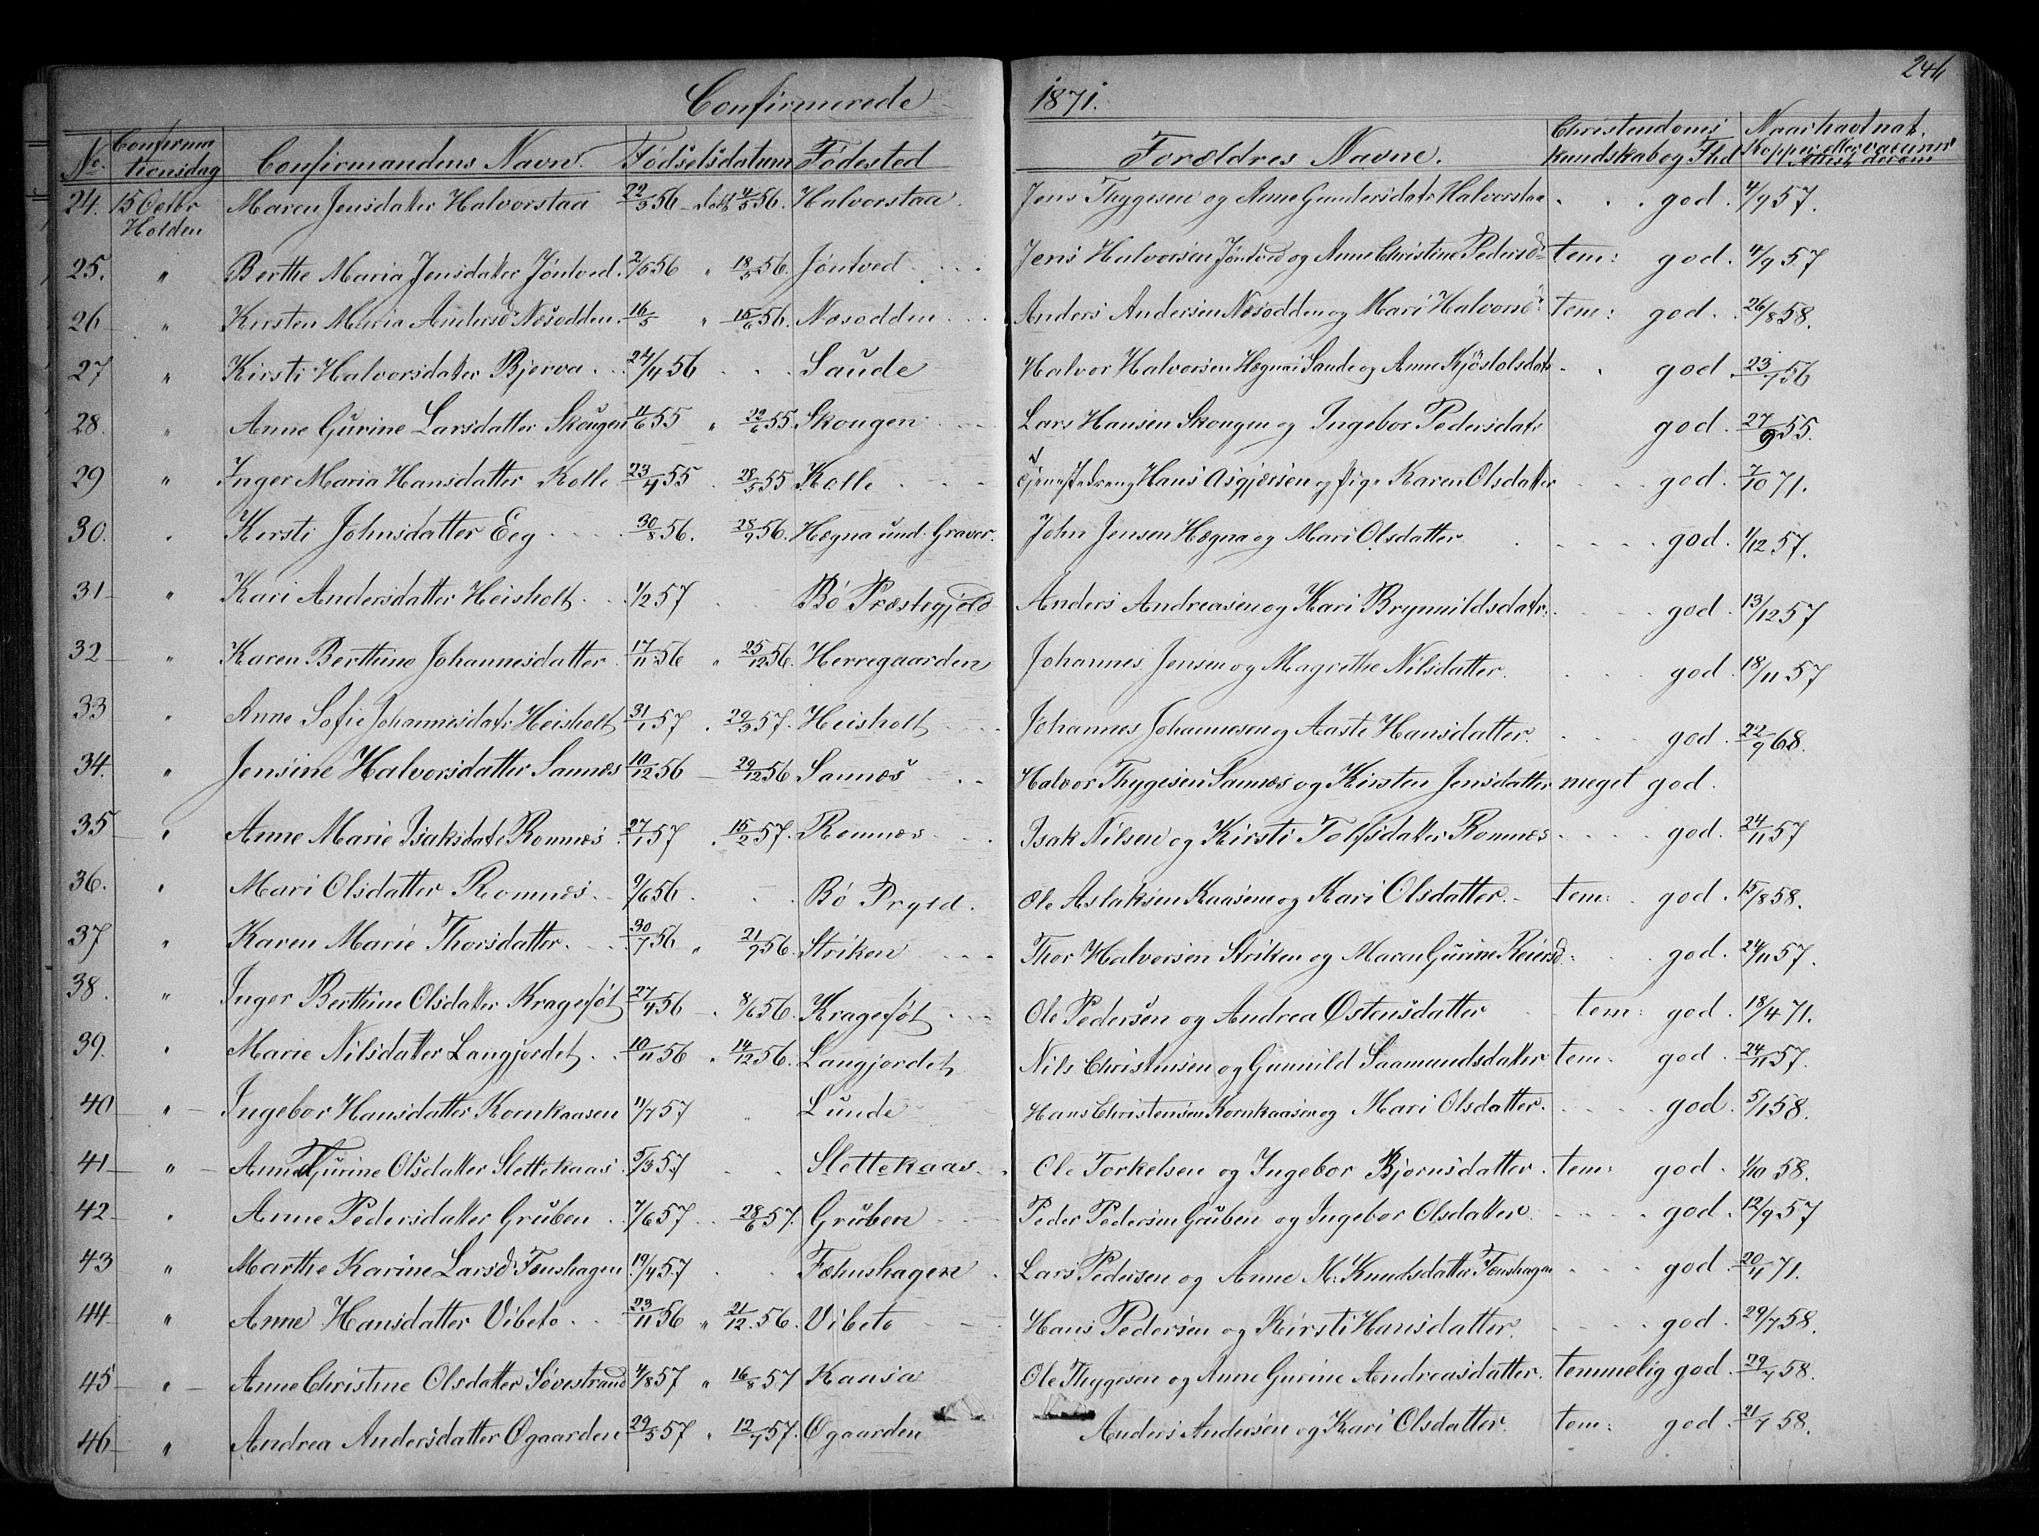 246
Confirmerede 1871.
No. Confirmationsdag Confirmandens Navn. Fødselsdatum Fødested Forældres Navne. Christendoms Kundskab og Flid Naar havt nat. Kopper eller vaccineret
24. 15 Octbr Holden Maren Jensdatter Halvorstaa 22/3 56 - døbt 4/5 56. Halvorstaa. Jens Thygesen og Anne Gundersdatr Halvorstaa . . . god. 4/9 57.
25. " Berthe Maria Jensdatter Jøntved. 2/5 56 " 18/5 56. Jøntved. Jens Halvorsen Jøntved og Anne Christine Pedersd tem: god. 4/9 57
26 " Kirsten Maria Andersd Næsodden. 16/5 " 15/6 56. Næsodden Anders Andersen Næsodden og Mari Halvorsd tem: god. 26/8 58.
27 " Kirsti Halvorsdatter Bjerva 24/4 56 Saude Halvor Halvorsen Hægna i Saude og Anne Kjøstolsdatr god. 23/7 56
28. " Anne Gurine Larsdatter Skougen 11/6 55 " 22/6 55 Skougen Lars Hansen Skougen og Ingebor Pedersdatr god. 27/9 55.
29 " Inger Maria Hansdatter Kolle 23/4 55 . 28/5 55 Kolle Tjenestedreng Hans Asgjersen og pige Karen Olsdatter god. 7/10 71.
30. " Kirsti Johnsdatter Eeg 30/8 56. 28/9 56. Hægna und. Graver. John Jensen Hægna og Mari Olsdatter god. 1/12 57.
31 " Kari Andersdatter Heisholt 1/2 57 Bø Præstegjeld Anders Andreasen og Kari Brynnildsdatr. god. 13/12 57
32 " Karen Berthine Johannesdatter 17/11 56 " 25/12 56. Herregaarden Johannes Jensen og Magrethe Nilsdatter. god. 18/11 57
33 " Anne Sofie Johannesdatr Heisholt 31/1 57 . 29/3 57. Heisholt Johannes Johannesen og Aaste Hansdatter. god. 22/9 68.
34. " Jensine Halvorsdatter Sannes 10/12 56 - 29/12 56 Sannes Halvor Thygesen Sannæs og Kirsten Jensdatter meget god.
35 " Anne Marie Isaksdatr Romnes 27/1 57 . 15/2 57. Romnes Isak Nilsen og Kirsti Tolfsdatter Romnes god. 24/11 57
36. " Mari Olsdatter Romnes 9/6 56 Bø Prgjld. Ole Aslaksen Kaasene og Kari Olsdatter. tem: god. 15/8 58.
37 " Karen Marie Thorsdatter. 30/7 56 " 21/9 56. Striken Thor Halvorsen Striken og Maren Gurine Reiersd: god. 24/11 57.
38. " Inger Berthine Olsdatter Kragefót 27/4 56 . 8/6 56. Kragefót Ole Pedersen og Andrea Østensdatter tem: god. 18/4 71.
39. " Marie Nilsdatter Langjordet. 10/11 56 . 14/12 56. Langjordet Nils Christensen og Gunnild Saamundsdatter tem: god. 24/11 57.
40 " Ingebor Hansdatter Kornkaasen 11/7 57 Lunde Hans Christensen Kornkaasen og Mari Olsdatter. god. 5/1 58.
41 " Anne Gurine Olsdatter Slettekaas 5/3 57 Slettekaas Ole Torkelsen og Ingebor Bjornsdatter. tem: god. 1/10 58.
42 " Anne Pedersdatter Gruben 7/6 57 28/6 57. Gruben Peder Pedersen Gruben og Ingebor Olsdatter. god. 12/9 57
43 " Marthe Karine Larsd Fenshagen 19/4 57 Fæhnshagen Lars Pedersen og Anne M. Knudsdatter Fenshagen god. 20/4 71.
44 " Anne Hansdatter Vibeto 23/11 56 " 21/12 56. Vibeto Hans Pedersen og Kirsti Hansdatter. god. 29/7 58.
45 " Anne Christine Olsdatter Søvestrand 4/8 57 " 16/8 57 Kaasa Ole Thygesen og Anne Gurine Andreasdatter. temmelig god. 29/7 58.
46 " Andrea Andersdatter Ogaarden 29/5 57 " 12/7 57. Ogaarden Anders Andersen og Kari Olsdatter. tem: god. 21/7 58.